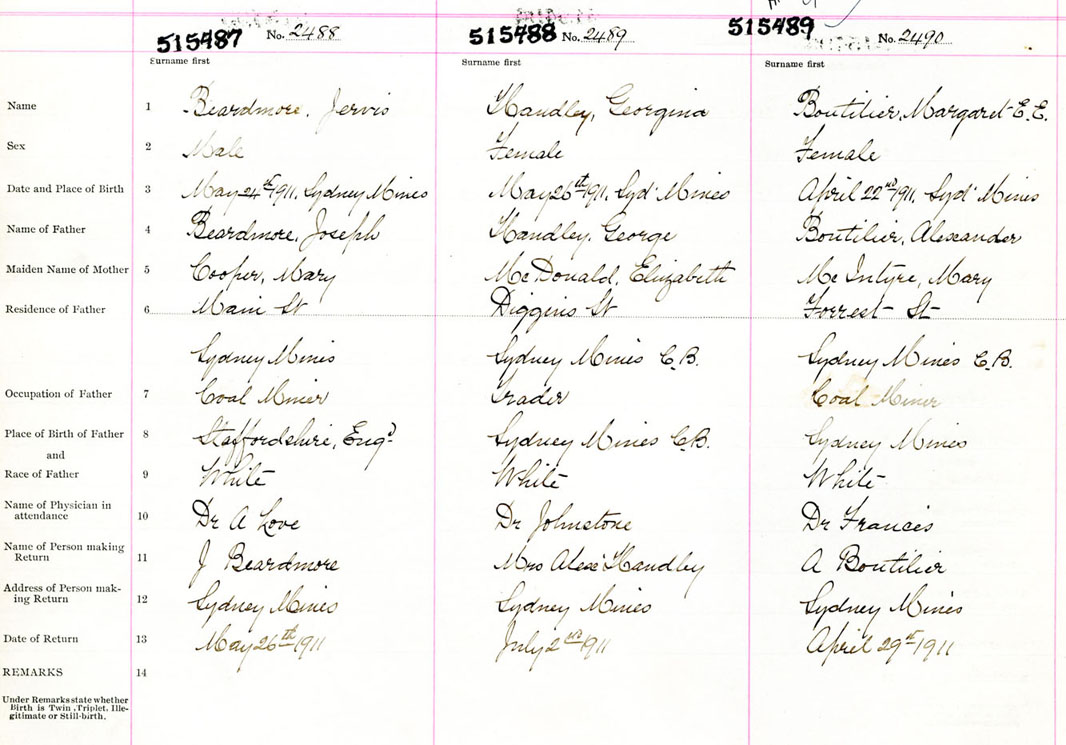 515487 No. 2488 515488 No. 2489 515489 No. 2490
Surname first Surname first Surname first
Name 1 Beardmore, Jervis Handley, Georgina Boutilier, Margaret E. E.
Sex 2 Male Female Female
Date and Place of Birth 3 May 24st 1911, Sydney Mines May 26th 1911, Syd' Mines April 22nd 1911, Syd' Mines
Name of Father 4 Beardmore, Joseph Handley, George Boutilier, Alexander
Maiden Name of Mother 5 Cooper, Mary McDonald, Elizabeth McIntyre, Mary
Residence of Father 6 Main St Diggins St Forrest St
Sydney Mines Sydney Mines C.B. Sydney Mines C.B.
Occupation of Father 7 Coal Miner Trader Coal Miner
Place of Birth of Father 8 Staffordshire, Engd Sydney Mines C.B. Sydney Mines
and
Race of Father 9 White White White
Name of Physician in
attendance 10 Dr A Love Dr Johnstone Dr Francis
Name of Person making
Return 11 J Beardmore Mrs Alex' Handley A Boutilier
Address of Person mak-
ing Return 12 Sydney Mines Sydney Mines Sydney Mines
Date of Return 13 May 26th 1911 July 2nd 1911 April 29st 1911
REMARKS 14
Under Remarks state whether
Birth is Twin, Triplet, Ille-
gitimate or Still-birth.